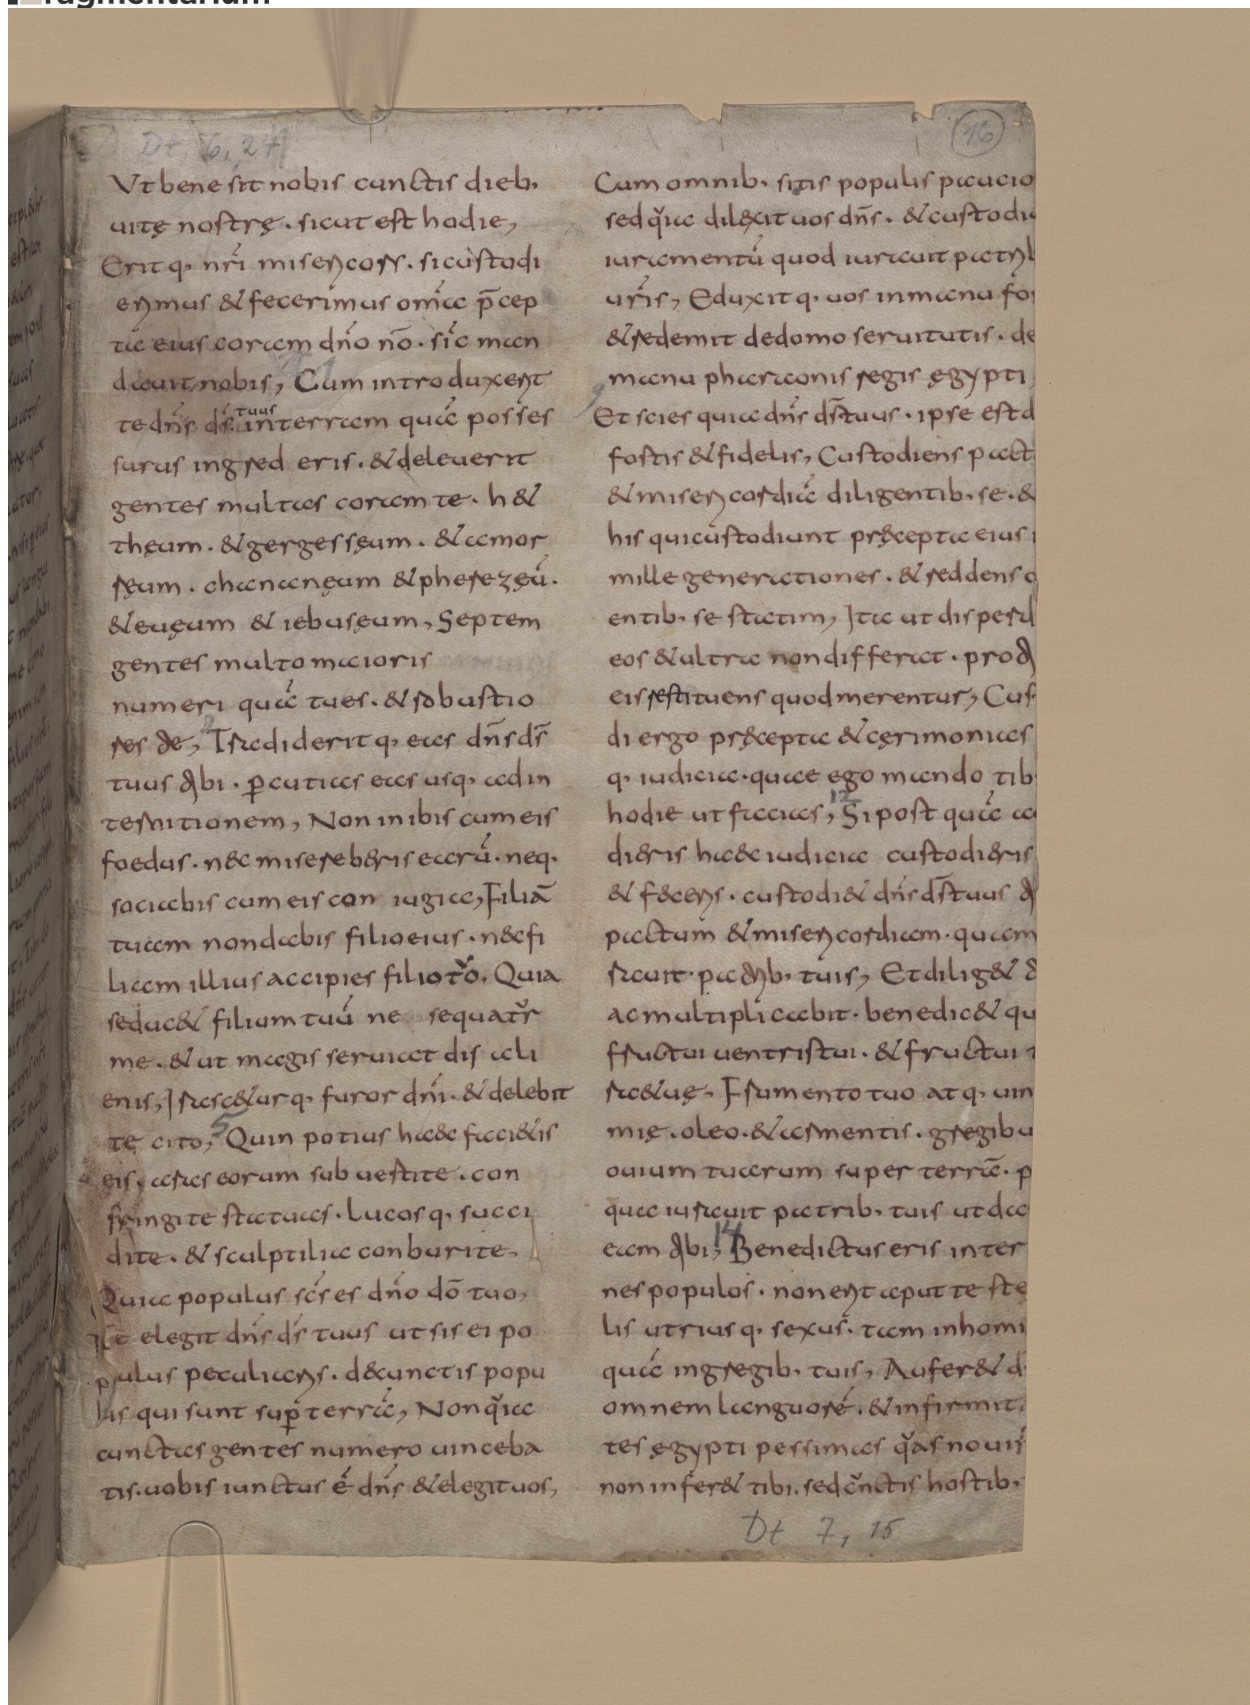 fragmentarium
Dt, 6, 24
16
Ut bene sit nobis cunctis dieb.
uitę nostrę. sicut est hodie,
Erit q. nr̄i misericors. si custodi
erimus & fecerimus om̄a p̄cep
ta eius coram dn̄o nō. sic man
dauit nobis, Cum introduxerit
te dn̄s ds̄ tuus in terram quā posses
surus ingred eris. & deleuerit
gentes multas coram te. h&
theum. & gergesseum. & amor
reum. chananęum & pherezeū.
& euęum & iebuseum, Septem
gentes multo maioris
numeri quā tu es. & robustio
res de, Tradiderit q. eas dn̄s ds̄
tuus tibi. p̄cuties eas usq. ad in
ternitionem, Non inibis cum eis
foedus. nec misereberis earū. neq.
sociabis cum eis con iugia, Filiā
tuam non dabis filio eius. nec fi
liam illius accipies filio tuo. Quia
seduc& filium tuū ne sequatur
me. & ut magis seruiat dis ali
enis, Irasc&ur q. furor dn̄i. & delebit
te cito, 5 Quin potius haec faci&is
eis, aras eorum subuertite. con
fringite statuas. lucos q. succi
dite. & sculptilia conburite,
Quia populus scs̄ es dn̄o dō tuo,
te elegit dn̄s ds̄ tuus ut sis ei po
pulus peculiaris. de cunctis popu
lis qui sunt sup̄ terrā, Non quia
cunctas gentes numero uinceba
tis. uobis iunctus ē dn̄s & elegit uos,
Cum omnib. sitis populis paucio
sed quia dilexit uos dn̄s. & custodi
iuramentū quod iurauit patrib
uris, Eduxit q. uos in manu for
& redemit de domo seruitutis. de
manu pharaonis regis ęgypti
9 Et scies quia dn̄s ds̄ tuus. ipse est d
fortis & fidelis, Custodiens pact
& misericordiā diligentib. se. &
his qui custodiunt pręcepta eius
mille generationes. & reddens o
entib. se statim, Ita ut disperd
eos & ultra non differat. prot
eis restituens quod merentur, Cus
di ergo pręcepta & cęrimonias
q. iudicia. quae ego mando tib
hodie ut facias, 12 Si post quā au
di&ris haec iudicia custodi&ris
& fec&ris. custodi& dn̄s ds̄ tuus t
pactum & misericordiam. quam
rauit. patrib. tuis, Et dilig& t
ac multiplicabit. benedic& qu
fructui uentris tui. & fructui t
rae tuę, Frumento tuo at q. uin
mię. oleo. & armentis. gregibu
ouium tuarum super terrā. p
qua iurauit patrib. tuis ut da
eam tibi, 14 Benedictus eris inter
nes populos. non erit aput te ste
lis utriusq. sexus. tam in homi
quā in gregib. tuis, Aufer& d
omnem languorē. & infirmit
tes ęgypti pessimas quas nouis
non infer& tibi. sed cunctis hostib.
Dt 7, 15